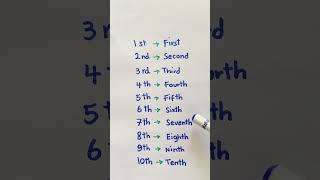 1st → First
2nd → Second
3rd → Third
4th → Fourth
5th → Fifth
6th → Sixth
7th → Seventh
8th → Eighth
9th → Ninth
10th → Tenth